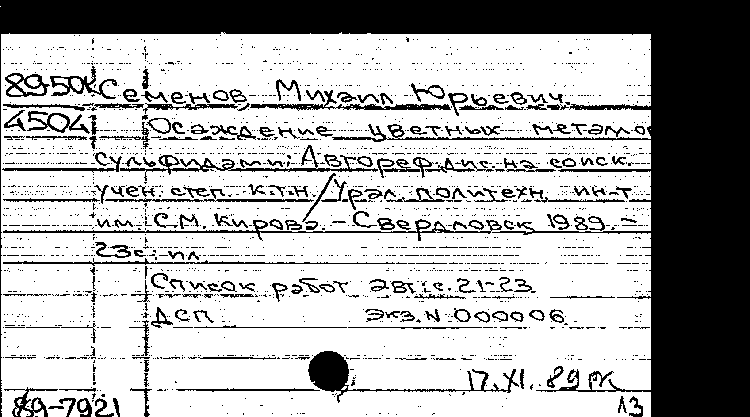 89-50к Семенов, Михаил Юрьевич.
4504 Осаждение цветных металло
сульфидами: Автореф. дис. на соиск.
учен. степ. к.т.н. / Урал. политехн. ин-т
им. С.М. Кирова. – Свердловск, 1989. –
23с.: ил.
Список работ авт.: с. 21-23
ДСП Экз. N 000006
17.XI.89
89-7921 13